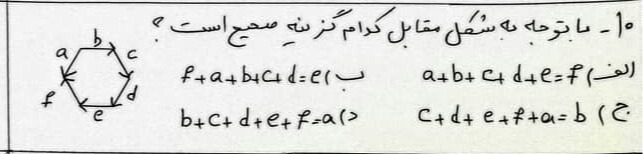 ۱۰- با توجه به شکل مقابل کدام گزینه صحیح است؟
الف) a+b+c+d+e=f ب) f+a+b+c+d=e
ج) c+d+e+f+a=b د) b+c+d+e+f=a
a b c d e f